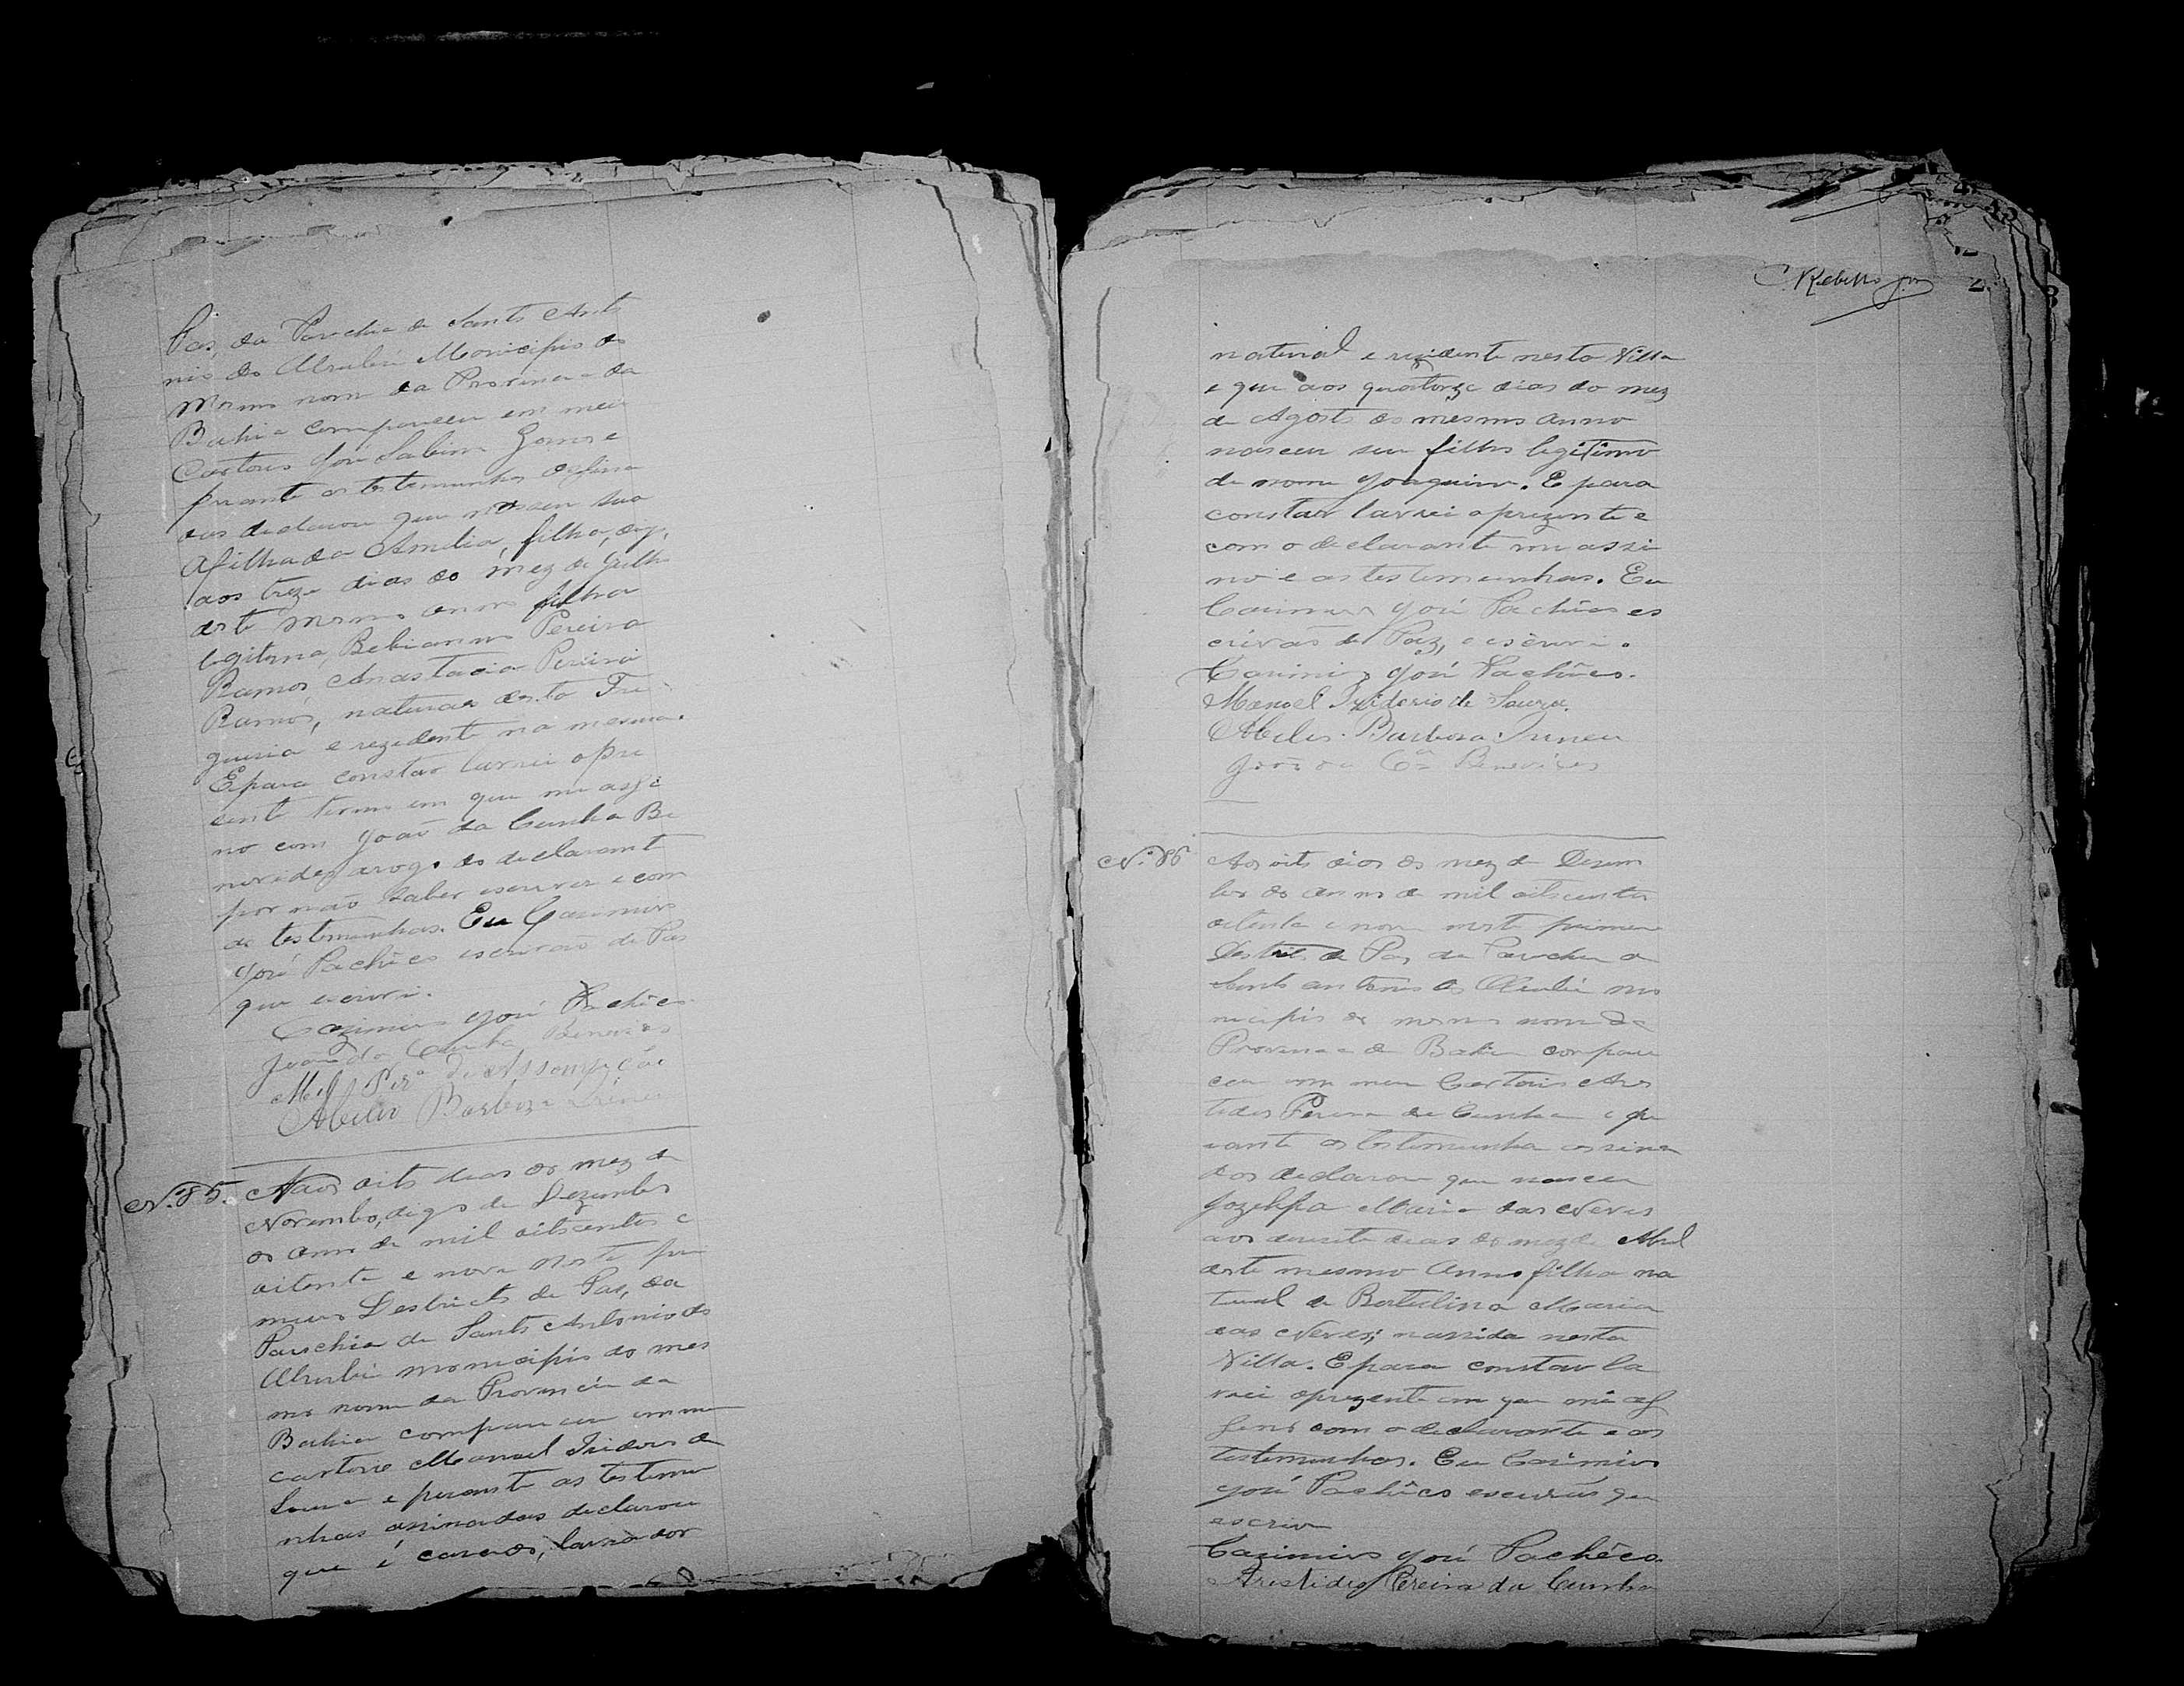 Pas, da Parochia de Santo Anto
nio do Alcubú Monicipio do
mesmo nome da Provincia da
Bahia compareceu em meu
Cartorio José Sabino Gomes e
perante as testemunhas assina
das declarou que nasceu sua
afilhada Amelia, filha, digo,
aos treze dias do mez de Julho
deste mesmo anno filha
legitima, Bebianno Pereira
Ramos, Anastacia Pereira
Ramos, naturaes desta Fre
guesia e rezidente na mesma.
E para constar lavrei o pre
sente termo em que me assi
no com João da Cunha Be
nevides arogo do declarante
por não saber escrever e com
as testemunhas. Eu Casimiro
José Pachêco escrivão de Pas
que escrevi.
Cazimiro José Pachêco
João da Cunha Benevides
Mel Perª de Assumpção
Abilio Barboza Irineu
N.º 85. Aaos oito dias do mez de
Novembo, digo de Dezembro
do anno de mil oitocentos e
oitenta e nove neste pri
meiro Destricto de Pas, da
Parochia de Santo Antonio do
Alcubú monicipio do mes
mo nome da Provincia da
Bahia compareceu em meu
cartorio Manoel Izidorio de
Souza e perante as testemu
nhas assinadas declarou
que é casado, lavrador
C. Rebello Jor
natural e rezidente nesta Villa
e que aos quatorze dias do mez
de Agosto do mesmo anno
nasceu seu filho legitimo
de nome Joaquim. E para
constar lavrei o prezente e
com o declarante me assi
no e as testemunhas. Eu
Casimiro José Pachêco es
crivão de Paz, o escrevi.
Casimiro José Pachêco.
Manoel Izidorio de Souza.
Abilio Barboza Irineu
João da Cª Benevides
N.º 86 Aos oito dias do mez de Dezem
bro do anno de mil oitocentos
oitenta e nove neste primeiro
Destricto de Pas da Parochia de
Santo Antonio do Alcubú mo
nicipio do mesmo nome da
Provincia da Bahia compare
ceu em meu Cartorio Aris
tides Pereira da Cunha e pe
rante as testemunha assina
das declarou que nasceu
Jozehpa Maria das Neves
aos dezesete dias do mez de Abril
deste mesmo anno filha na
tural de Bertulina Maria
das Neves, nassida nesta
Villa. E para constar la
vrei o prezente em que me as
sino com o declarante e as
testemunhas. Eu Casimiro
José Pachêco escrivão que
escrevi
Casimiro José Pachêco.
Aristides Pereira da Cunha